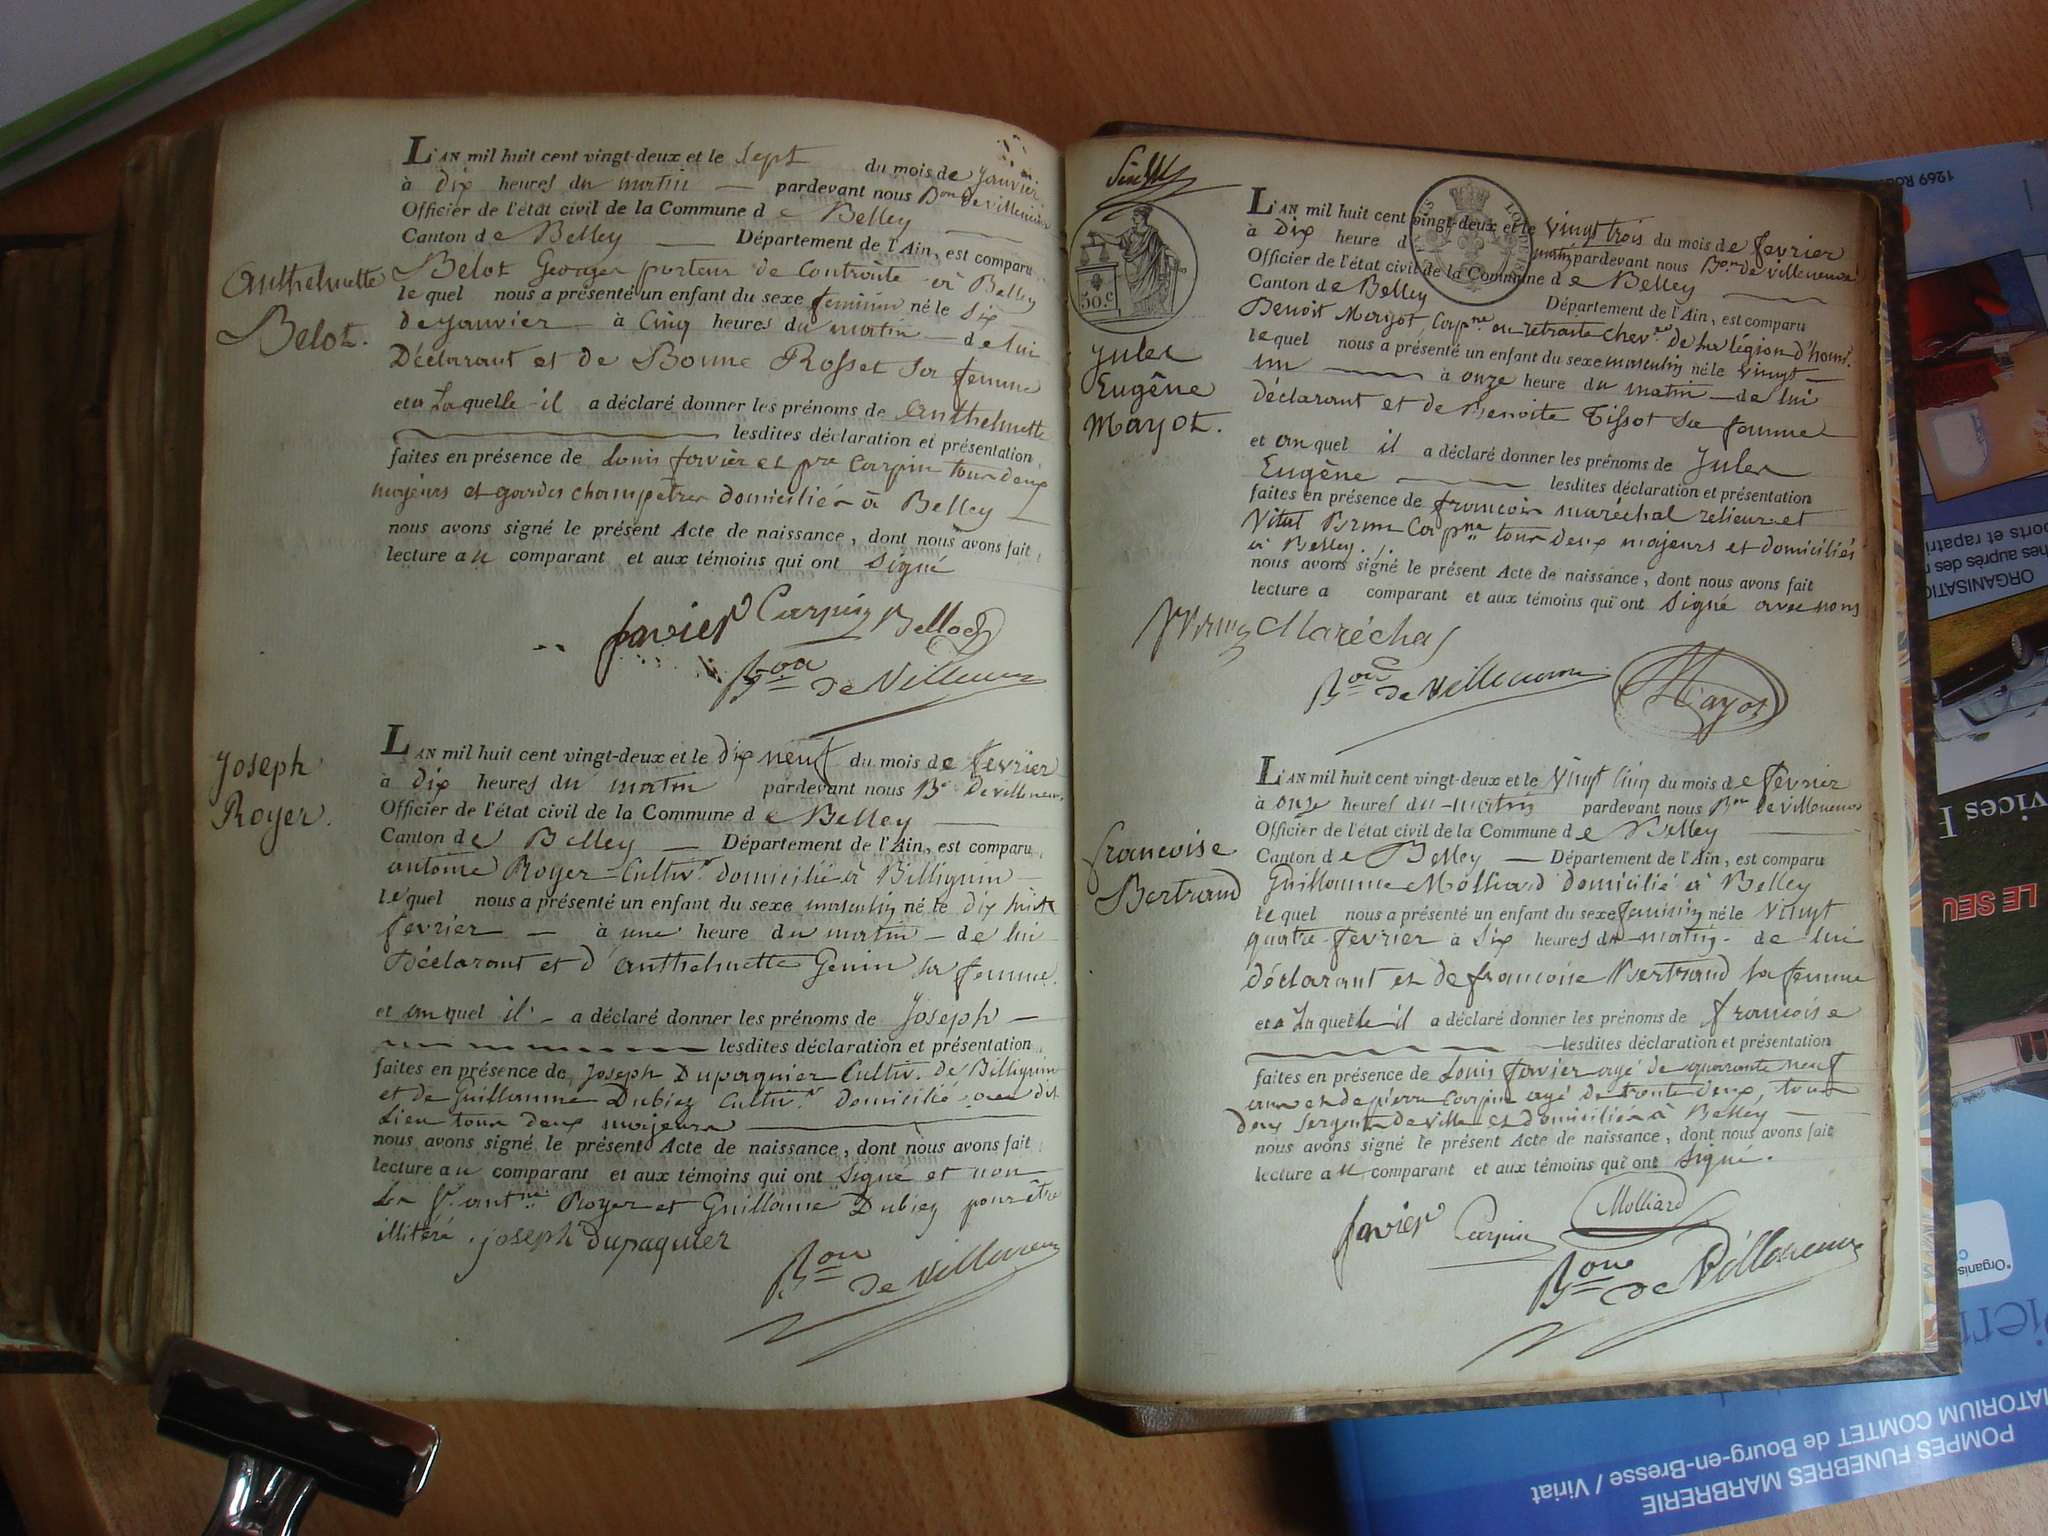 Anthelmette
Belot.
L'AN mil huit cent vingt-deux et le sept du mois de Janvier
à dix heures du matin pardevant nous Bon de villeneuve
Officier de l'état civil de la Commune de Belley
Canton de Belley Département de l'Ain, est comparu
Belot George porteur de Contrainte à Belley
lequel nous a présenté un enfant du sexe feminin né le six
de Janvier à cinq heures du matin de lui
Déclarant et de Bonne Rosset sa femme
et a Laquelle il a déclaré donner les prénoms de anthelmette
lesdites déclaration et présentation
faites en présence de Louis favier et pre Carpin tous deux
majeurs et gardes champêtres domiciliés à Belley
nous avons signé le présent Acte de naissance, dont nous avons fait
lecture au comparant et aux témoins qui ont signé
favier Carpin Belloz
Bon de Villeneuve
Joseph
Royer.
L'AN mil huit cent vingt-deux et le dix neuf du mois de fevrier
à dix heures du matin pardevant nous Bon De villeneuve
Officier de l'état civil de la Commune de Belley
Canton de Belley Département de l'Ain, est comparu
antoine Royer Cultivr domicilié à Billignin
lequel nous a présenté un enfant du sexe masculin né le dix huit
fevrier à une heure du matin de lui
Déclarant et d'anthelmette Genin sa femme.
et auquel il a déclaré donner les prénoms de Joseph
lesdites déclaration et présentation
faites en présence de Joseph Dupaquier Cultiv. de Billignin
et de Guillaume Dubiez Cultivr domicilié au dit
Lieu tous deux majeurs
nous avons signé le présent Acte de naissance, dont nous avons fait
lecture au comparant et aux témoins qui ont signé et non
Le Sr antne Royer et Guillaume Dubiez pour être
illitéré. joseph dupaquier
Bon de Villeneuve
50.c
Jules
Eugêne
Mayot.
L'AN mil huit cent vingt-deux et le vingt trois du mois de fevrier
à Dix heure d matin pardevant nous Bon de villeneuve
Officier de l'état civil de la Commune de Belley
Canton de Belley Département de l'Ain, est comparu
Benoit Mayot, Capne en retraite chever de la légion d'honr.
lequel nous a présenté un enfant du sexe masculin né le vingt
un à onze heure du matin de lui
déclarant et de Benoite Tissot sa femme
et auquel il a déclaré donner les prénoms de Jules
Eugêne lesdites déclaration et présentation
faites en présence de francois maréchal relieur et
Vital Brun Capne tous deux majeurs et domiciliés
à Belley.
nous avons signé le présent Acte de naissance, dont nous avons fait
lecture a comparant et aux témoins qui ont signé avec nous
VBrun Maréchal
Bon de Villeneuve Mayot
francoise
Bertrand
L'AN mil huit cent vingt-deux et le vingt cinq du mois de fevrier
à onze heures du matin pardevant nous Bon de villeneuve
Officier de l'état civil de la Commune de Belley
Canton de Belley Département de l'Ain, est comparu
Guillaume Molliard domicilié à Belley
lequel nous a présenté un enfant du sexe feminin né le vingt
quatre fevrier à six heures du matin de lui
déclarant et de francoise Bertrand sa femme
et a Laquelle il a déclaré donner les prénoms de francoise
lesdites déclaration et présentation
faites en présence de Louis favier agé de quarante neuf
ans et de pierre Carpin agé de trente deux, tous
deux sergents de ville et domiciliés à Belley
nous avons signé le présent Acte de naissance, dont nous avons fait
lecture au comparant et aux témoins qui ont signé.
favier Carpin Molliard
Bon de Villeneuve
1269 Ro
orts et rapatri
hes auprès des
ORGANISATIO
vices F
LE SEU
*Organis
Pierr
POMPES FUNEBRES MARBRERIE
ATORIUM COMTET de Bourg-en-Bresse / Viriat